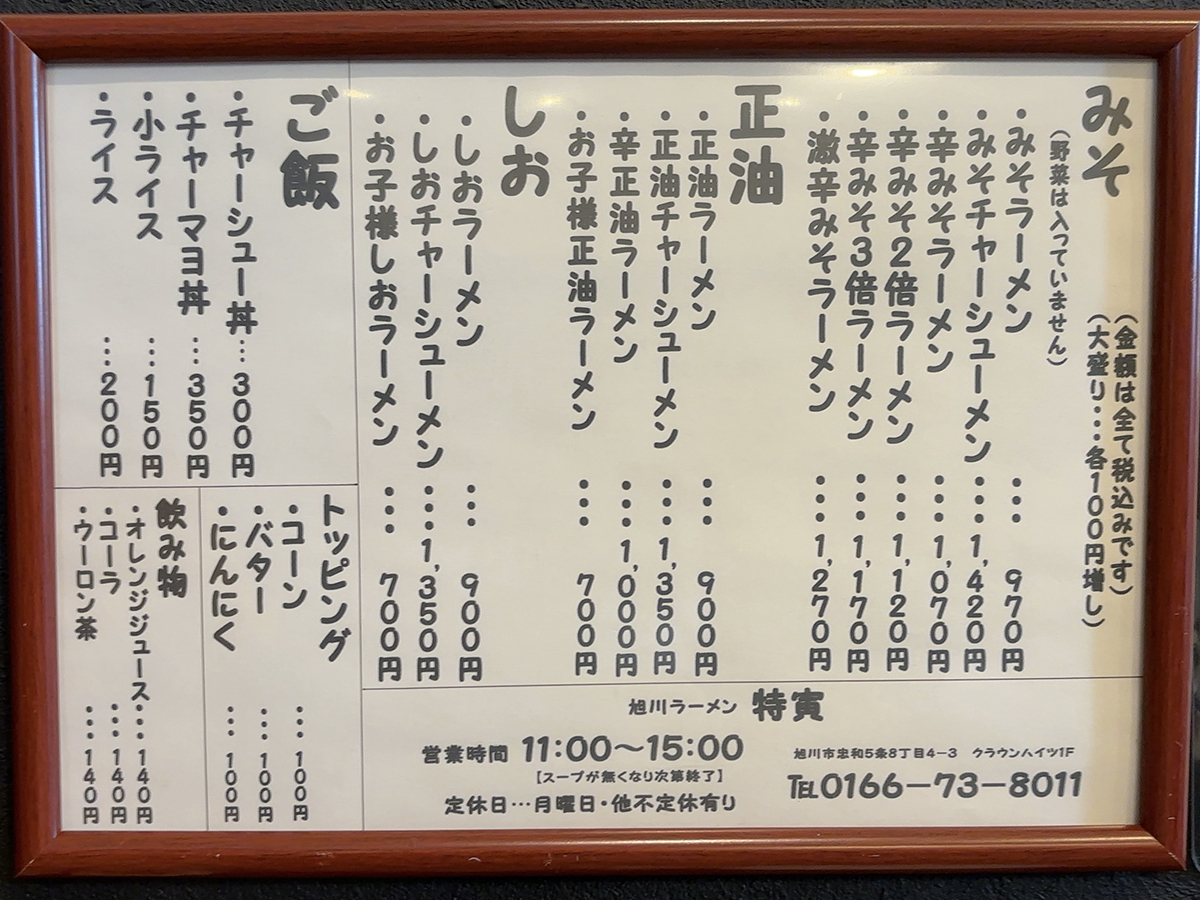 みそ
(金額は全て税込みです)
(大盛り・・・各100円増し)
(野菜は入っていません)
・みそラーメン ・・・ 970円
・みそチャーシューメン・・・1,420円
・辛みそラーメン ・・・1,070円
・辛みそ2倍ラーメン ・・・1,120円
・辛みそ3倍ラーメン ・・・1,170円
・激辛みそラーメン ・・・1,270円
正油
・正油ラーメン ・・・ 900円
・正油チャーシューメン ・・・1,350円
・辛正油ラーメン ・・・1,000円
・お子様正油ラーメン ・・・ 700円
しお
・しおラーメン ・・・ 900円
・しおチャーシューメン ・・・1,350円
・お子様しおラーメン ・・・ 700円
ご飯
・チャーシュー丼…300円
・チャーマヨ丼 …350円
・小ライス …150円
・ライス …200円
トッピング
・コーン ・・・100円
・バター ・・・100円
・にんにく ・・・100円
飲み物
・オレンジジュース・・・140円
・コーラ ・・・140円
・ウーロン茶 ・・・140円
旭川ラーメン 特寅
営業時間 11:00〜15:00
【スープが無くなり次第終了】
定休日…月曜日・他不定休有り
旭川市忠和5条8丁目4−3 クラウンハイツ1F
TEL0166−73−8011